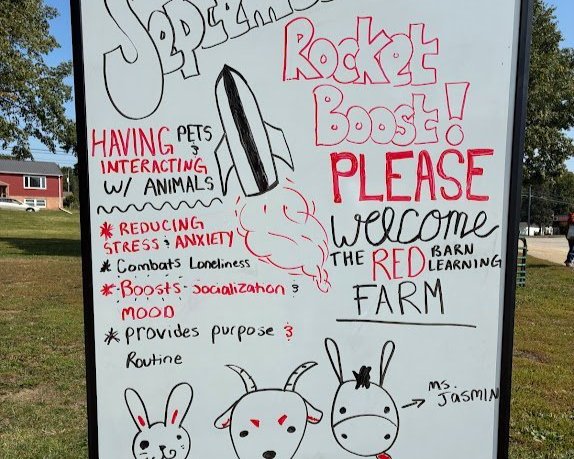 Rocket
Boost!
HAVING PETS
&
INTERACTING
W/ ANIMALS
* REDUCING
STRESS & ANXIETY
* Combats Loneliness
* Boosts socialization &
MOOD
* provides purpose &
Routine
PLEASE
welcome
THE RED BARN
LEARNING
FARM
Ms.
JASMIN